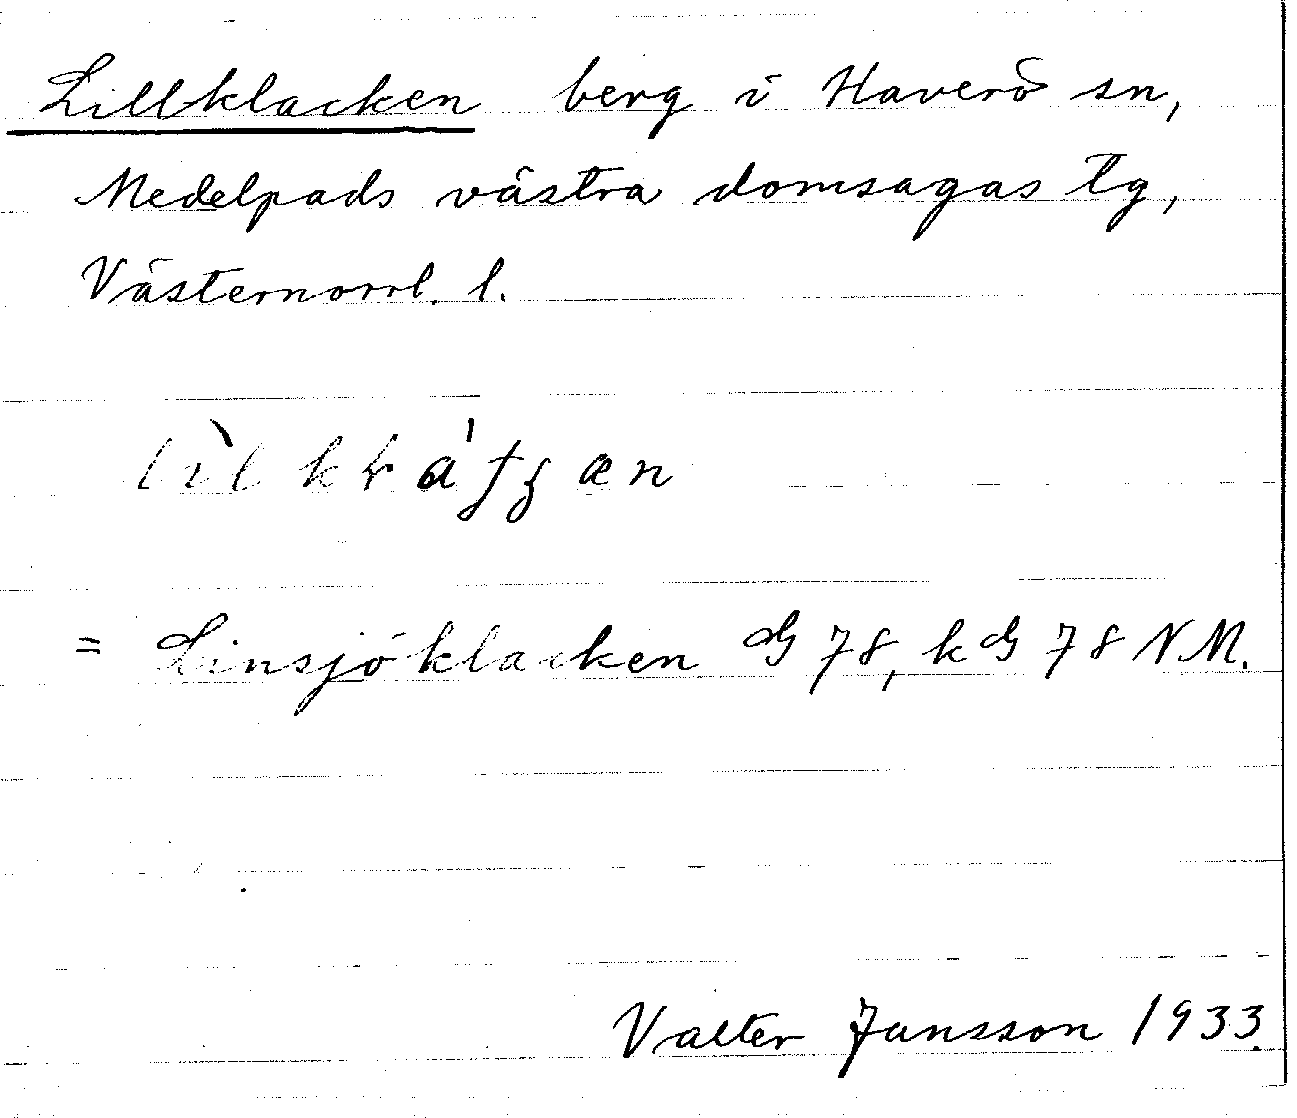 Lillklacken berg i Haverö sn,
Medelpads västra domsagas tg,
Västernorrl. l.
= Linsjöklacken G 78, kG 78 NM.
Valter Jansson 1933.